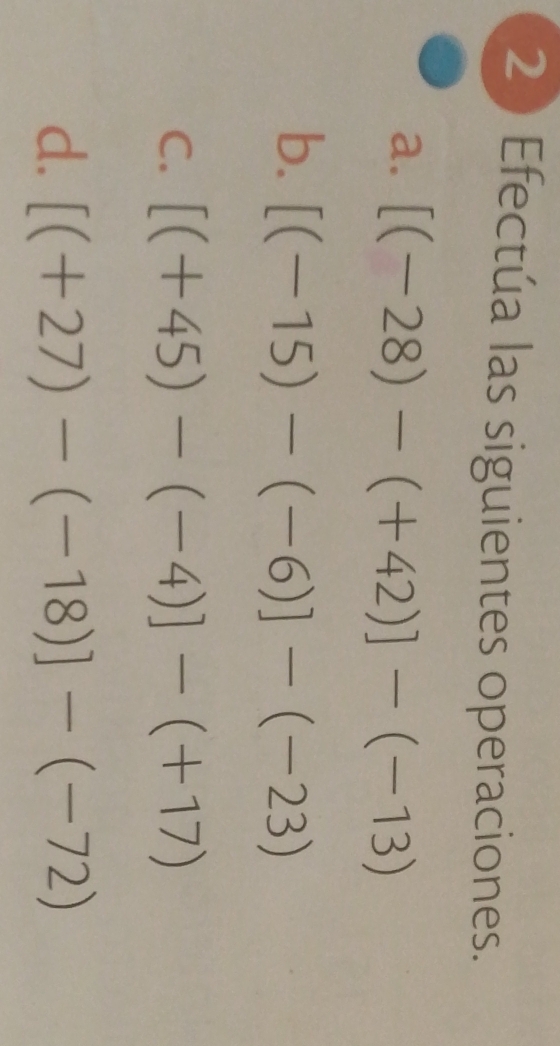 2 Efectúa las siguientes operaciones.
a. [(−28) − (+42)] − (−13)
b. [(−15) − (−6)] − (−23)
c. [(+45) − (−4)] − (+17)
d. [(+27) − (−18)] − (−72)